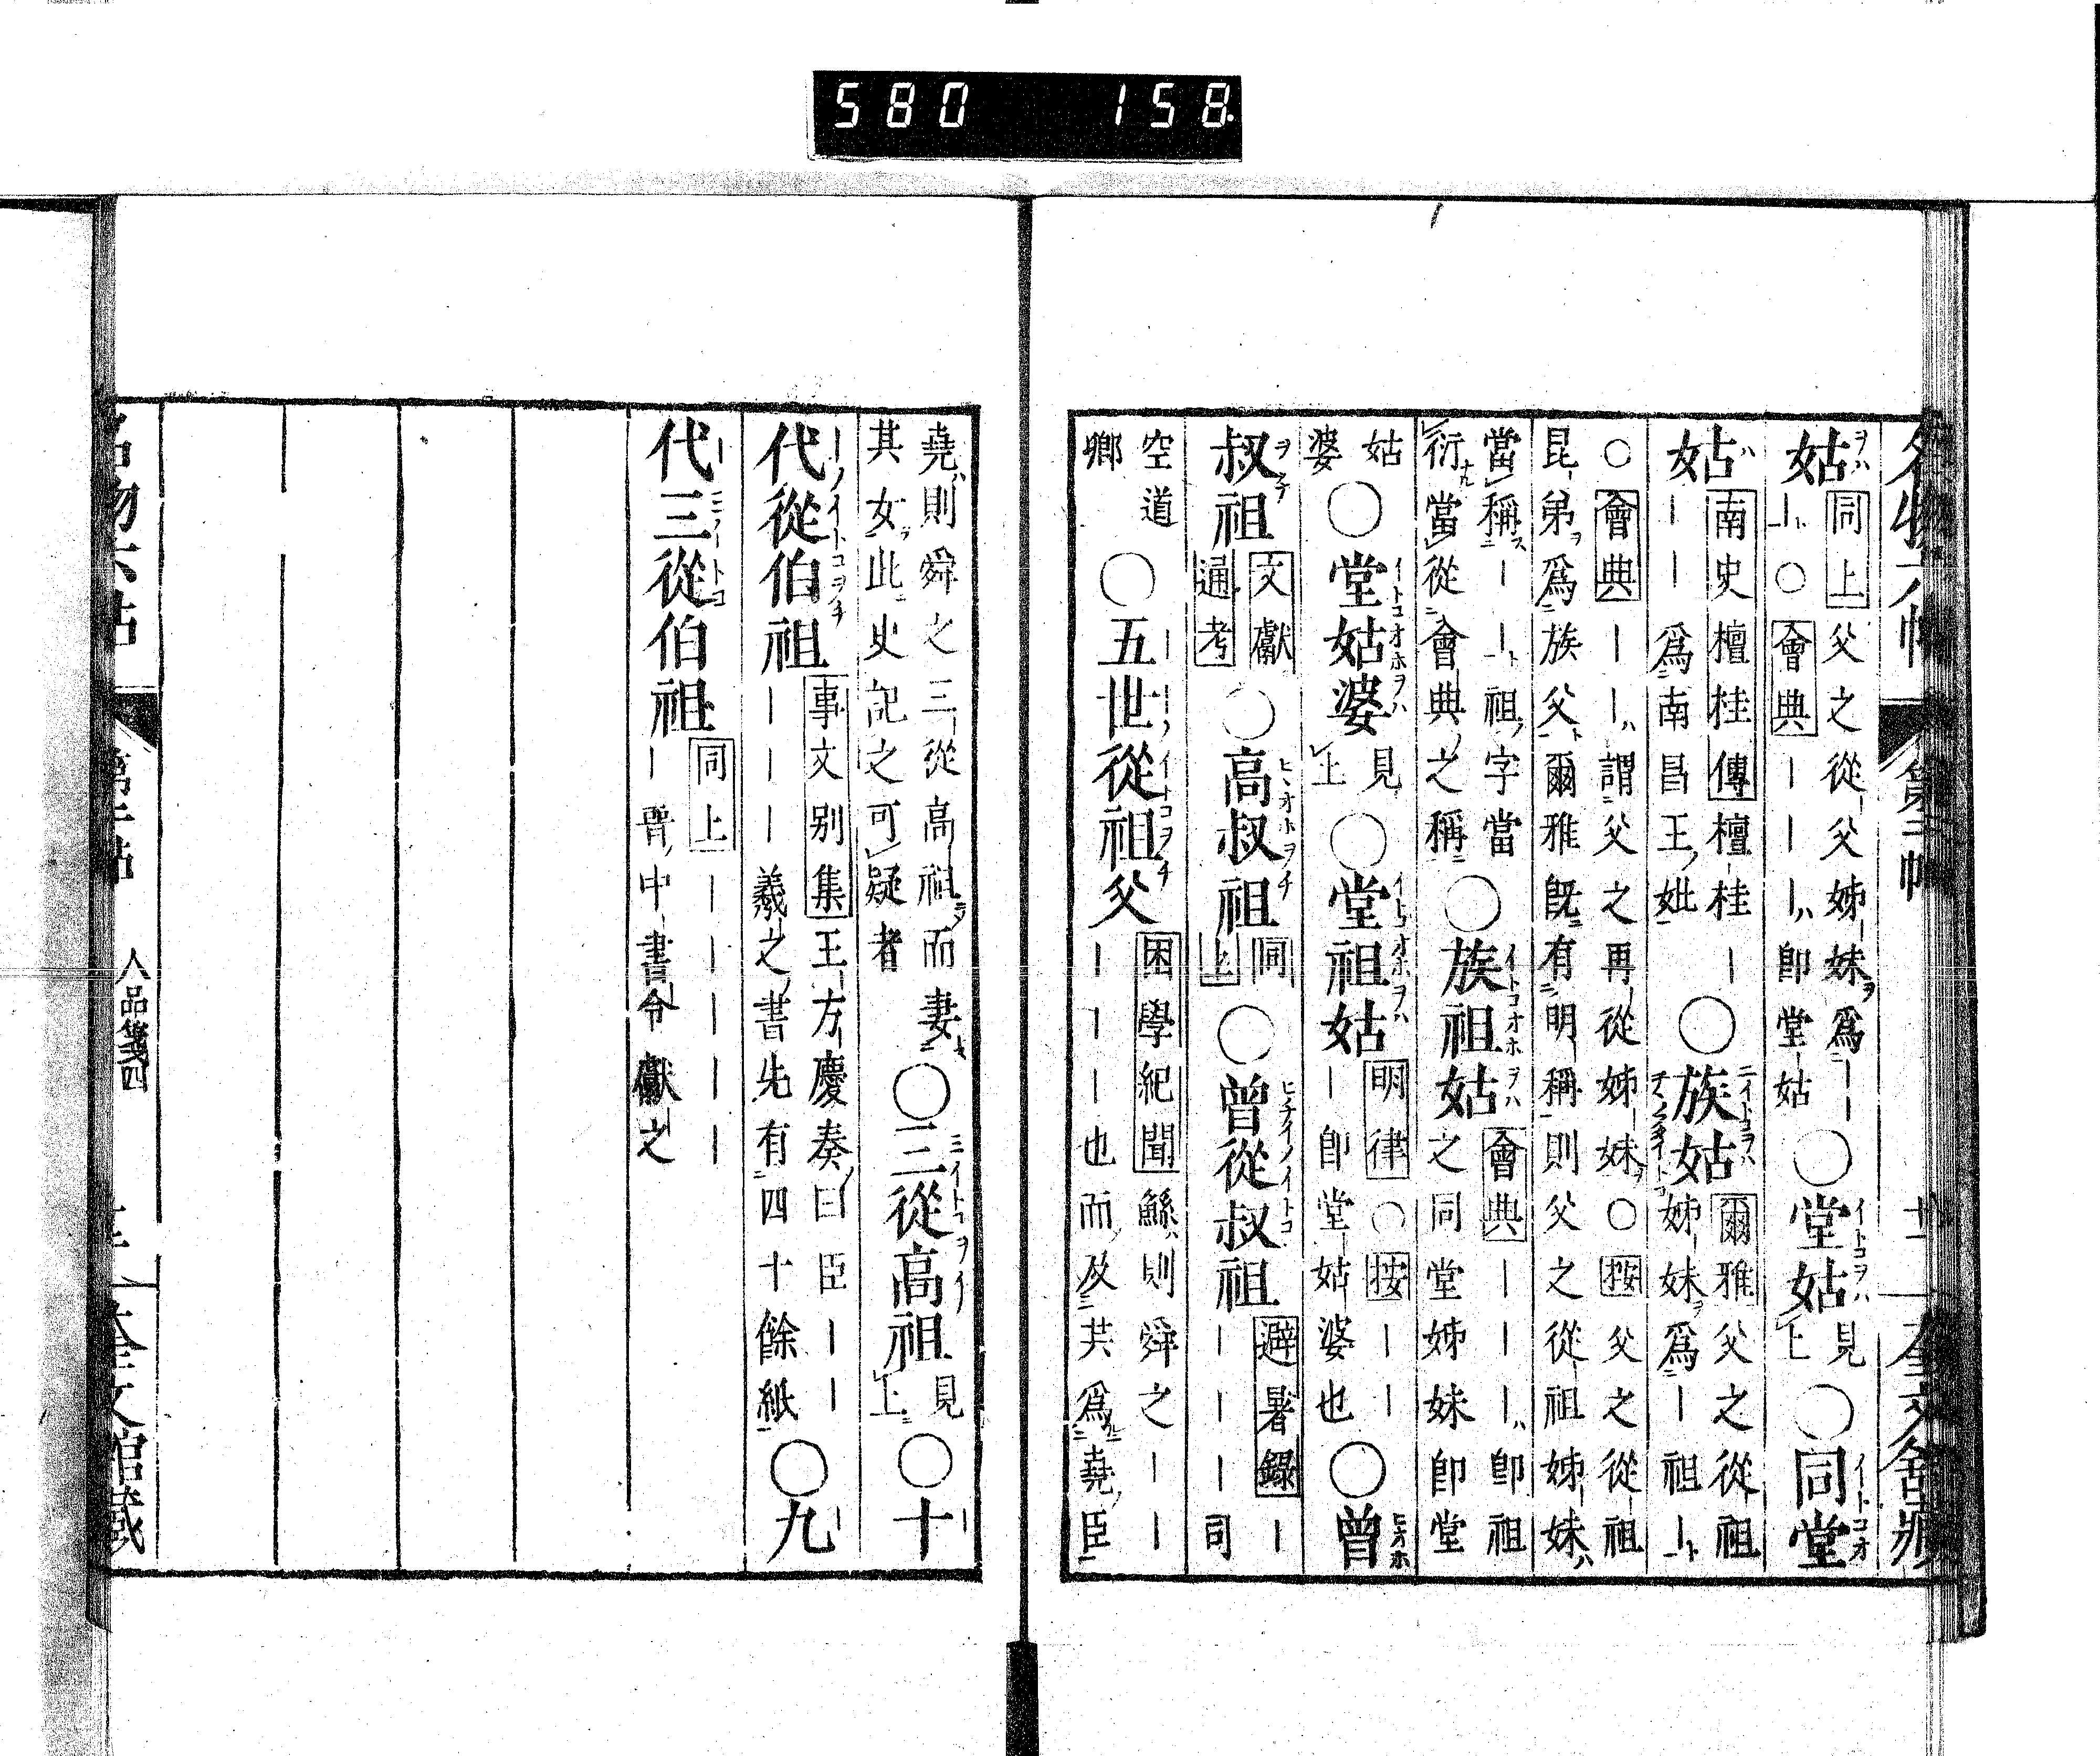 580 158.
名物六帖 第二帖 廿一 奎文舘藏
姑 同上父之從父姊妹ヲ爲｜｜
｜｜○會典｜｜｜ハ卽堂姑 ○堂姑 見上 ○同堂
姑 南史檀桂傳檀桂｜
｜｜爲南昌王ノ妣 ○族姑 爾雅父之從祖
姊妹ヲ爲｜祖｜
○會典｜｜ハ謂父之再從姊妹ヲ○按父之從祖
昆弟ヲ爲族父ト爾雅旣有明稱則父之從祖姊妹ハ
當稱ス｜｜ト祖ノ字當
衍當從會典ノ之稱 ○族祖姑 會典｜｜｜ハ卽祖
之同堂姊妹卽堂
姑
婆 ○堂姑婆 見上 ○堂祖姑 明律○按｜｜
｜卽堂姑婆也 ○曾
叔祖 文獻
通考 ○高叔祖 同上 ○曾從叔祖 避暑錄｜
｜｜｜司
空道
鄉 ○五世從祖父 困學紀聞鯀ハ則舜之｜｜
｜｜｜也而及其爲堯ノ臣
堯ハ則舜之三從高祖ヲ而妻
其女ヲ此史記之可疑者 ○三從高祖 見上 ○十
代從伯祖 事文别集王方慶奏ノ曰臣｜｜
｜｜｜羲之ノ書先有四十餘紙 ○九
代三從伯祖 同上｜｜｜｜｜
｜晋ノ中書令獻之
名物六帖 第二帖 人品箋四 奎文館藏